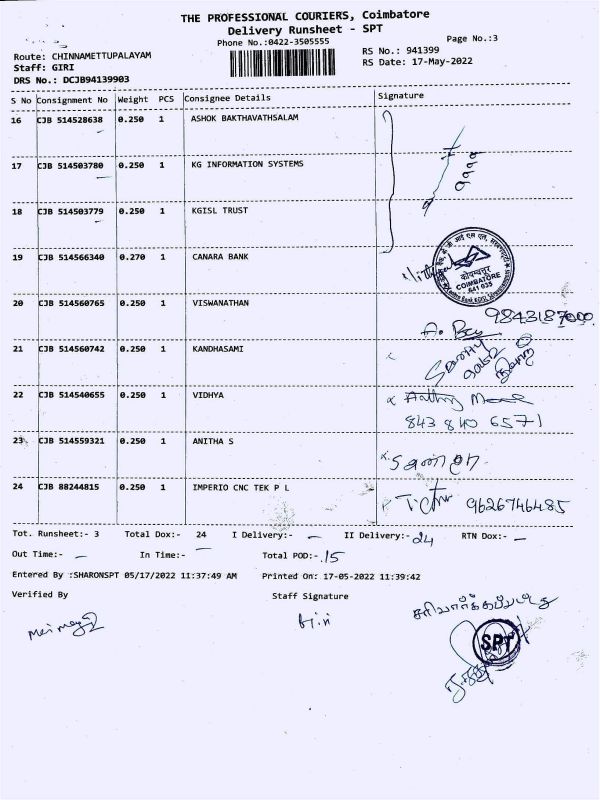 THE PROFESSIONAL COURIERS, Coimbatore
Delivery Runsheet - SPT
Phone No.:0422-3505555
Page No.:3
Route: CHINNAMETTUPALAYAM
RS No.: 941399
Staff: GIRI
RS Date: 17-May-2022
DRS No.: DCJB94139903
S No Consignment No Weight PCS Consignee Details Signature
16 CJB 514528638 0.250 1 ASHOK BAKTHAVATHSALAM
17 CJB 514503780 0.250 1 KG INFORMATION SYSTEMS
18 CJB 514503779 0.250 1 KGISL TRUST
19 CJB 514566340 0.270 1 CANARA BANK
कोयम्बतूर
COIMBATORE
641 035
20 CJB 514560765 0.250 1 VISWANATHAN
9843187000
21 CJB 514560742 0.250 1 KANDHASAMI
22 CJB 514540655 0.250 1 VIDHYA
843 840 6571
23 CJB 514559321 0.250 1 ANITHA S
24 CJB 88244815 0.250 1 IMPERIO CNC TEK P L
9626746485
Tot. Runsheet:- 3 Total Dox:- 24 I Delivery:- – II Delivery:- 24 RTN Dox:- –
Out Time:- – In Time:- – Total POD:- 15
Entered By :SHARONSPT 05/17/2022 11:37:49 AM Printed On: 17-05-2022 11:39:42
Verified By Staff Signature
Giri
SPT